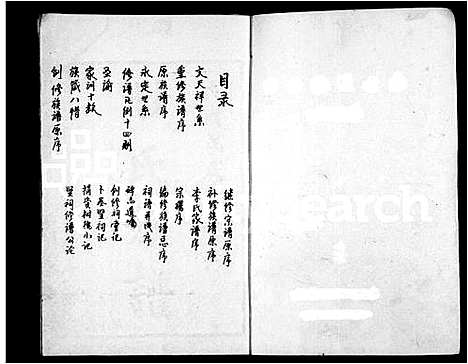 目录
文天祥世系
重修族谱序
原族谱序
永定世系
修谱凡例十四则
圣谕
家训十款
族箴八惜
创修族谱原序
继修宗谱原序
补修族谱原序
李氏家谱序
宗谱序
编修族谱总序
祠谱序
创修祠堂记
卜基坚祠记
捐资树德小记
坚祠修谱公论